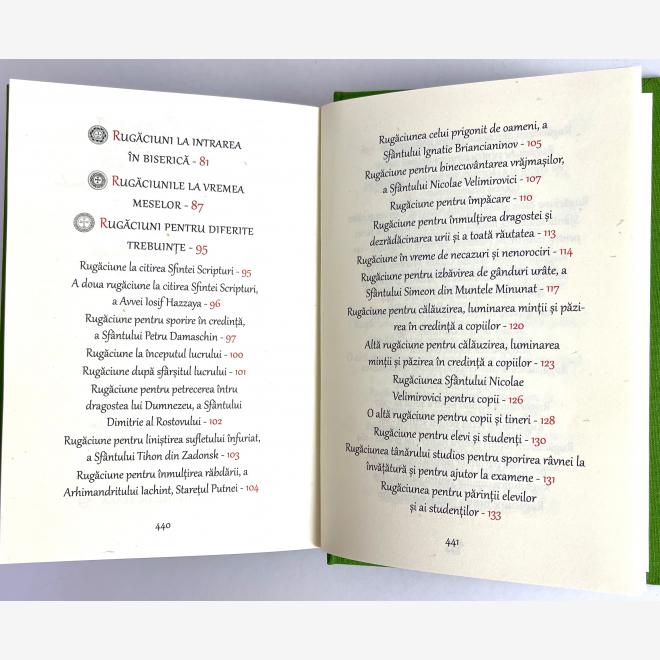 Rugăciuni la intrarea
în biserică - 81
Rugăciunile la vremea
meselor - 87
Rugăciuni pentru diferite
trebuințe - 95
Rugăciune la citirea Sfintei Scripturi - 95
A doua rugăciune la citirea Sfintei Scripturi,
a Avvei Iosif Hazzaya - 96
Rugăciune pentru sporire în credință,
a Sfântului Petru Damaschin - 97
Rugăciune la începutul lucrului - 100
Rugăciune după sfârșitul lucrului - 101
Rugăciune pentru petrecerea întru
dragostea lui Dumnezeu, a Sfântului
Dimitrie al Rostovului - 102
Rugăciune pentru liniștirea sufletului înfuriat,
a Sfântului Tihon din Zadonsk - 103
Rugăciune pentru înmulțirea răbdării, a
Arhimandritului Iachint, Starețul Putnei - 104
440
Rugăciunea celui prigonit de oameni, a
Sfântului Ignatie Briancianinov - 105
Rugăciune pentru binecuvântarea vrăjmașilor,
a Sfântului Nicolae Velimirovici - 107
Rugăciune pentru împăcare - 110
Rugăciune pentru înmulțirea dragostei și
dezrădăcinarea urii și a toată răutatea - 113
Rugăciune în vreme de necazuri și nenorociri - 114
Rugăciune pentru izbăvirea de gânduri urâte, a
Sfântului Simeon din Muntele Minunat - 117
Rugăciune pentru călăuzirea, luminarea minții și păzi-
rea în credință a copiilor - 120
Altă rugăciune pentru călăuzirea, luminarea
minții și păzirea în credință a copiilor - 123
Rugăciunea Sfântului Nicolae
Velimirovici pentru copii - 126
O altă rugăciune pentru copii și tineri - 128
Rugăciune pentru elevi și studenți - 130
Rugăciunea tânărului studios pentru sporirea râvnei la
învățătură și pentru ajutor la examene - 131
Rugăciunea pentru părinții elevilor
și ai studenților - 133
441